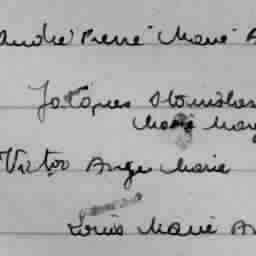 André Pierre Marie A
Jacques Stanislas
Marie Marg
Victor Ange Marie
Louis Marie An